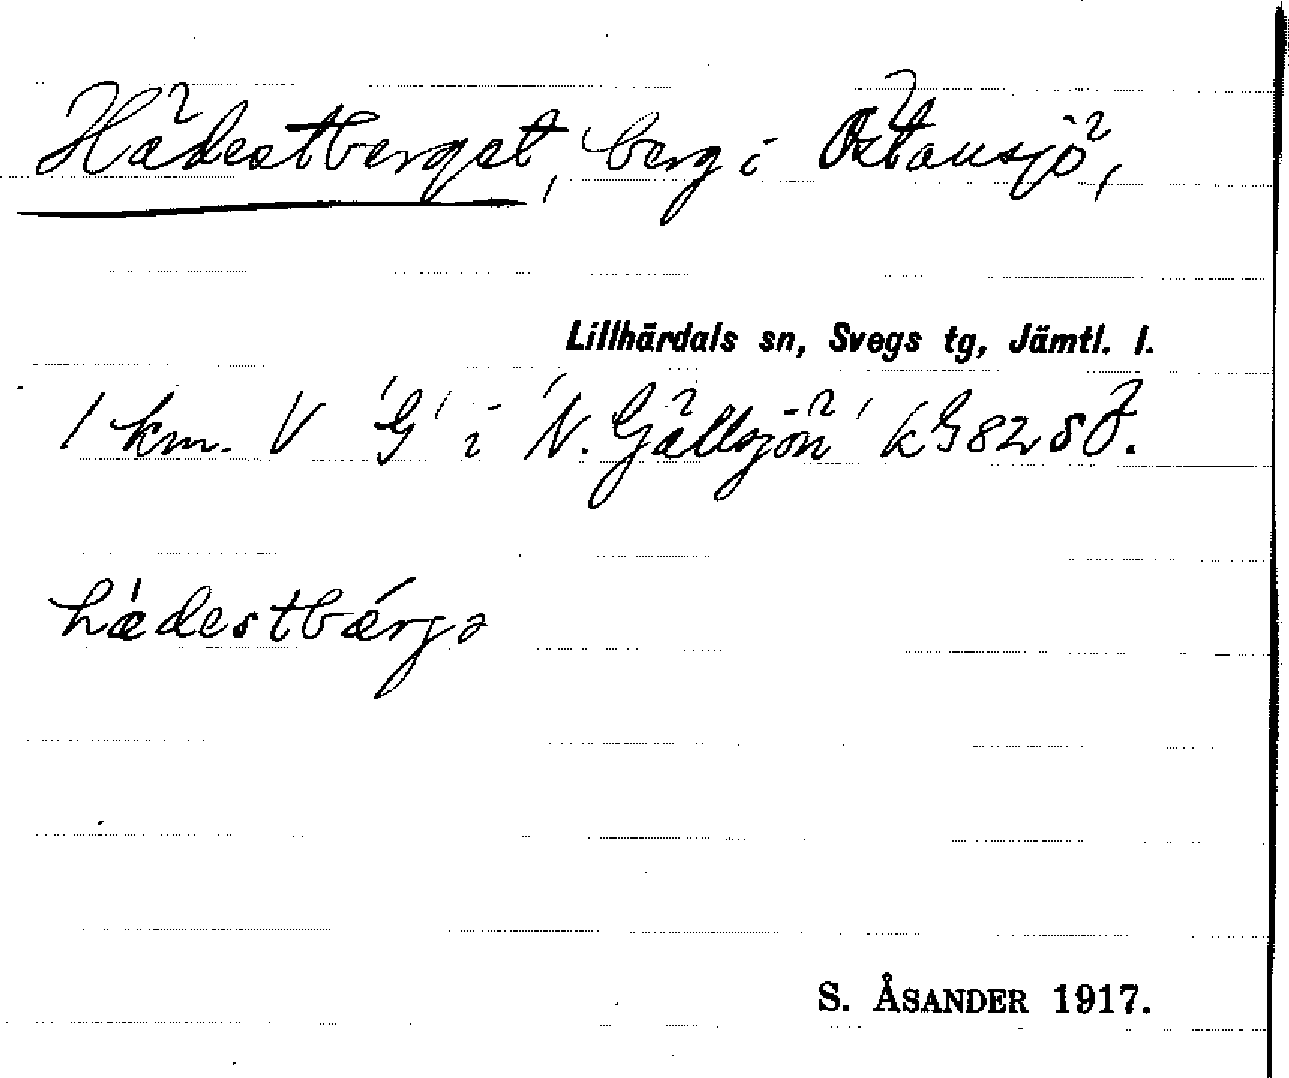 Hädestberget, berg i Östansjö,
Lillhärdals sn, Svegs tg, Jämtl. l.
1 km. V 'G' i 'N. Gällsjön' kG 82 SÖ.
hädestbärjə
S. ÅSANDER 1917.